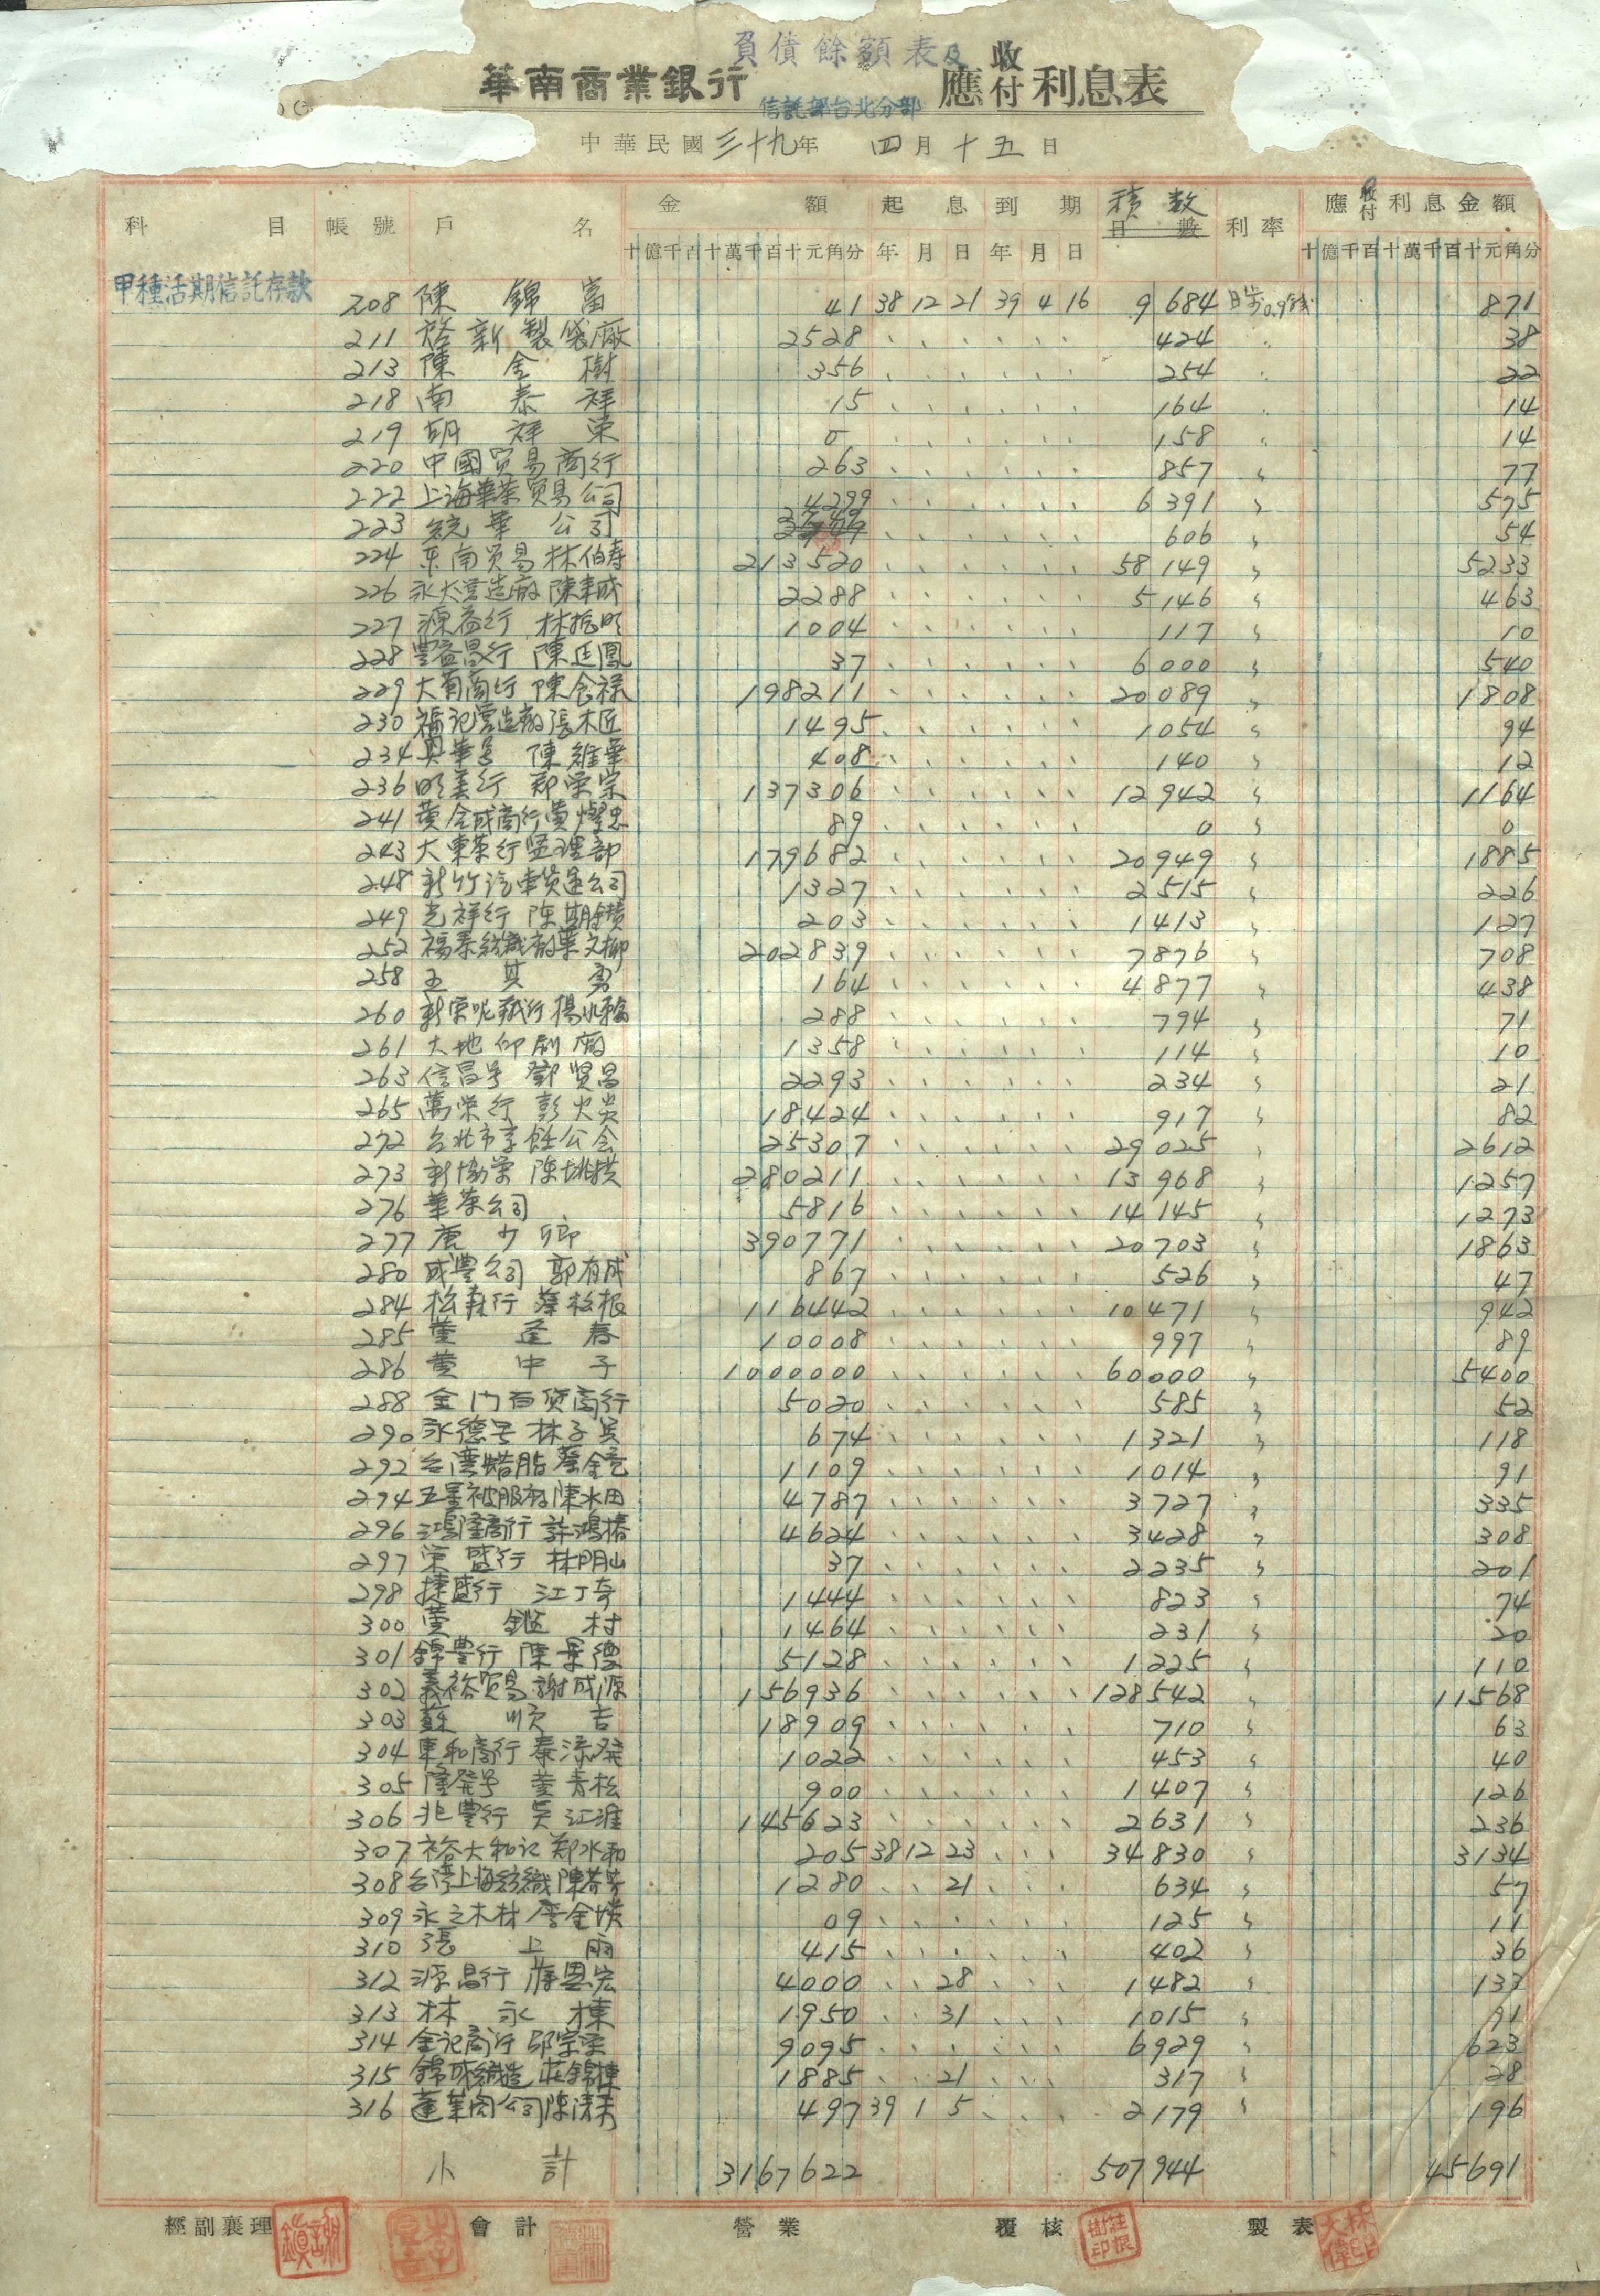 負債餘額表及
華南商業銀行 信託部台北分部 應收付利息表
中華民國三十九年 四月十五日
科目 帳號 戶名 金額 起息 到期 積數 日數 利率 應收付利息金額
十億千百十萬千百十元角分 年月日年月日 十億千百十萬千百十元角分
甲種活期信託存款
208 陳錦富 41 38 12 21 39 4 16 9684 日步0.9 871
211 啓新製袋廠 2528 424 38
213 陳金樹 356 254 22
218 南泰祥 15 164 14
219 朝祥東 0 158 14
220 中國贸易商行 263 857 77
222 上海華茶贸易公司 4299 6391 575
223 統華公司 606 54
224 东南贸易 林伯寿 213520 58149 5233
226 永大营造廠 陳 2288 5146 463
227 源益行 林 1004 117 10
228 豐益昌行 陳廷鳳 37 6000 540
229 大有商行 陳食祿 198211 20089 1808
230 福記营造廠 張木匠 1495 1054 94
234 興華号 陳維華 408 140 12
236 明美行 郑荣宗 137306 12942 1164
241 黄合成商行 黄燦忠 89 0 0
243 大東茶行 監理部 179682 20949 1885
248 新竹汽車货運公司 1327 2515 226
249 光祥行 陈期鐨 203 1413 127
252 福泰紡織廠 葉文柳 202839 7876 708
258 王其勇 164 4877 438
260 新荣呢絨行 楊 288 794 71
261 大地印刷廠 1358 114 10
263 信昌号 鄧贤昌 2293 234 21
265 萬荣行 彭火炎 18424 917 82
272 台北市 公会 25307 29025 2612
273 新協荣 陈 280211 13968 1257
276 華茶公司 5816 14145 1273
277 唐少卿 390771 20703 1863
280 成豊公司 郭有成 867 526 47
284 松森行 蔡松根 116442 10471 942
285 董逢春 10008 997 89
286 黄中子 1000000 60000 5400
288 金门百货商行 5020 585 52
290 永德号 林子昊 674 1321 118
292 台湾蜡脂 蔡金 1109 1014 91
294 五星被服廠 陳水田 4787 3727 335
296 鴻隆商行 許鴻椿 4624 3428 308
297 荣盛行 林明山 37 2235 201
298 捷盛行 江丁奇 1444 823 74
300 黄鑑村 1464 231 20
301 錦豊行 陳景德 5128 1225 110
302 義裕贸易 謝成源 156936 128542 11568
303 蘇順吉 18909 710 63
304 東和商行 秦添發 1022 453 40
305 隆発号 葉青松 900 1407 126
306 兆豊行 吴江淮 145623 2631 236
307 裕大和记 郑水和 205 38 12 23 34830 3134
308 台湾上海紡織 陳 1280 21 634 57
309 永之木材 李金墣 09 125 11
310 張上雨 415 402 36
312 源昌行 蔣恩宏 4000 28 1482 133
313 林永棟 1950 31 1015 91
314 金记商行 邱宗荣 9095 6929 623
315 錦成織造 莊錦棟 1885 21 317 28
316 蓬莱阁公司 陈清 497 39 1 5 2179 196
小計 3167622 507944 45691
經副襄理 會計 營業 覆核 製表